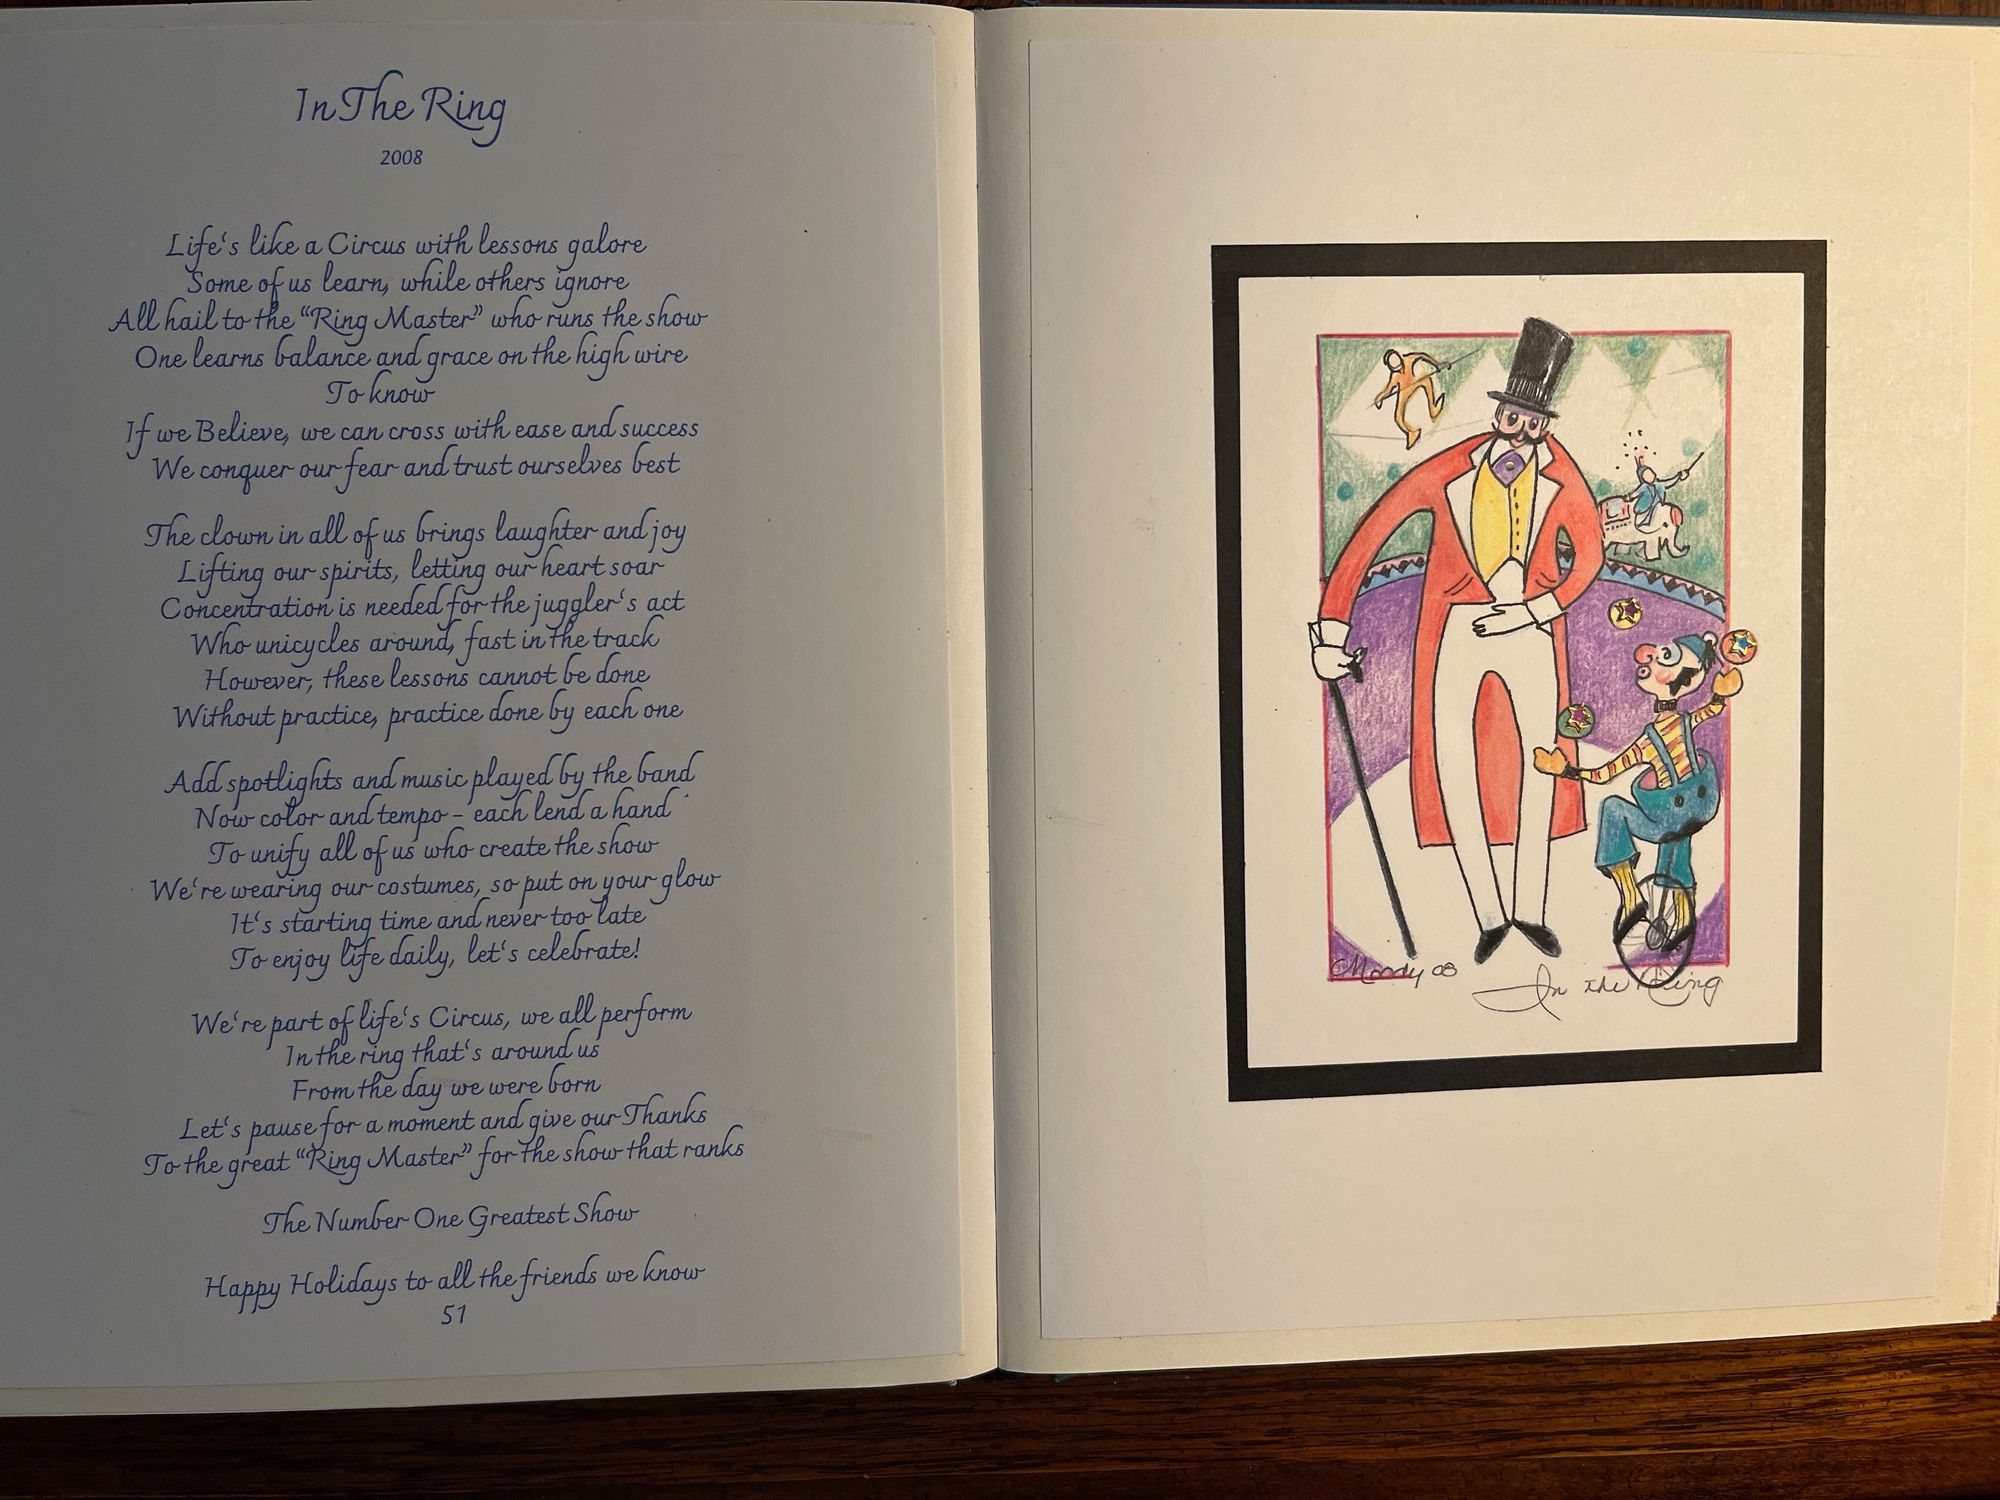 In The Ring
2008
Life's like a Circus with lessons galore
Some of us learn, while others ignore
All hail to the “Ring Master” who runs the show
One learns balance and grace on the high wire
To know
If we Believe, we can cross with ease and success
We conquer our fear and trust ourselves best
The clown in all of us brings laughter and joy
Lifting our spirits, letting our heart soar
Concentration is needed for the juggler's act
Who unicycles around, fast in the track
However, these lessons cannot be done
Without practice, practice done by each one
Add spotlights and music played by the band
Now color and tempo - each lend a hand
To unify all of us who create the show
We're wearing our costumes, so put on your glow
It's starting time and never too late
To enjoy life daily, let's celebrate!
We're part of life's Circus, we all perform
In the ring that's around us
From the day we were born
Let's pause for a moment and give our Thanks
To the great “Ring Master” for the show that ranks
The Number One Greatest Show
Happy Holidays to all the friends we know
51
CMoody 08
In the Ring